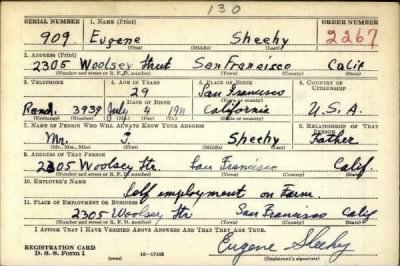 130
SERIAL NUMBER 1. NAME (Print) ORDER NUMBER
909 Eugene Sheehy 2267
(First) (Middle) (Last)
2. ADDRESS (Print)
2305 Woolsey Street San Francisco Calif
(Number and street or R. F. D. number) (Town) (County) (State)
3. TELEPHONE 4. AGE IN YEARS 5. PLACE OF BIRTH 6. COUNTRY OF CITIZENSHIP
29 San Francisco
DATE OF BIRTH (Town or county)
Rand. 3939 July 4 1911 California U.S.A.
(Exchange) (Number) (Mo.) (Day) (Yr.) (State or country)
7. NAME OF PERSON WHO WILL ALWAYS KNOW YOUR ADDRESS 8. RELATIONSHIP OF THAT PERSON
Mr. Sheehy Father
(Mr., Mrs., Miss) (First) (Middle) (Last)
9. ADDRESS OF THAT PERSON
2305 Woolsey Str. San Francisco Calif.
(Number and street or R. F. D. number) (Town) (County) (State)
10. EMPLOYER'S NAME
Self employment on Farm.
11. PLACE OF EMPLOYMENT OR BUSINESS
2305 Woolsey Str San Francisco Calif
(Number and street or R. F. D. number) (Town) (County) (State)
I AFFIRM THAT I HAVE VERIFIED ABOVE ANSWERS AND THAT THEY ARE TRUE.
REGISTRATION CARD Eugene Sheehy
D. S. S. Form 1 16-17105 (Registrant's signature)